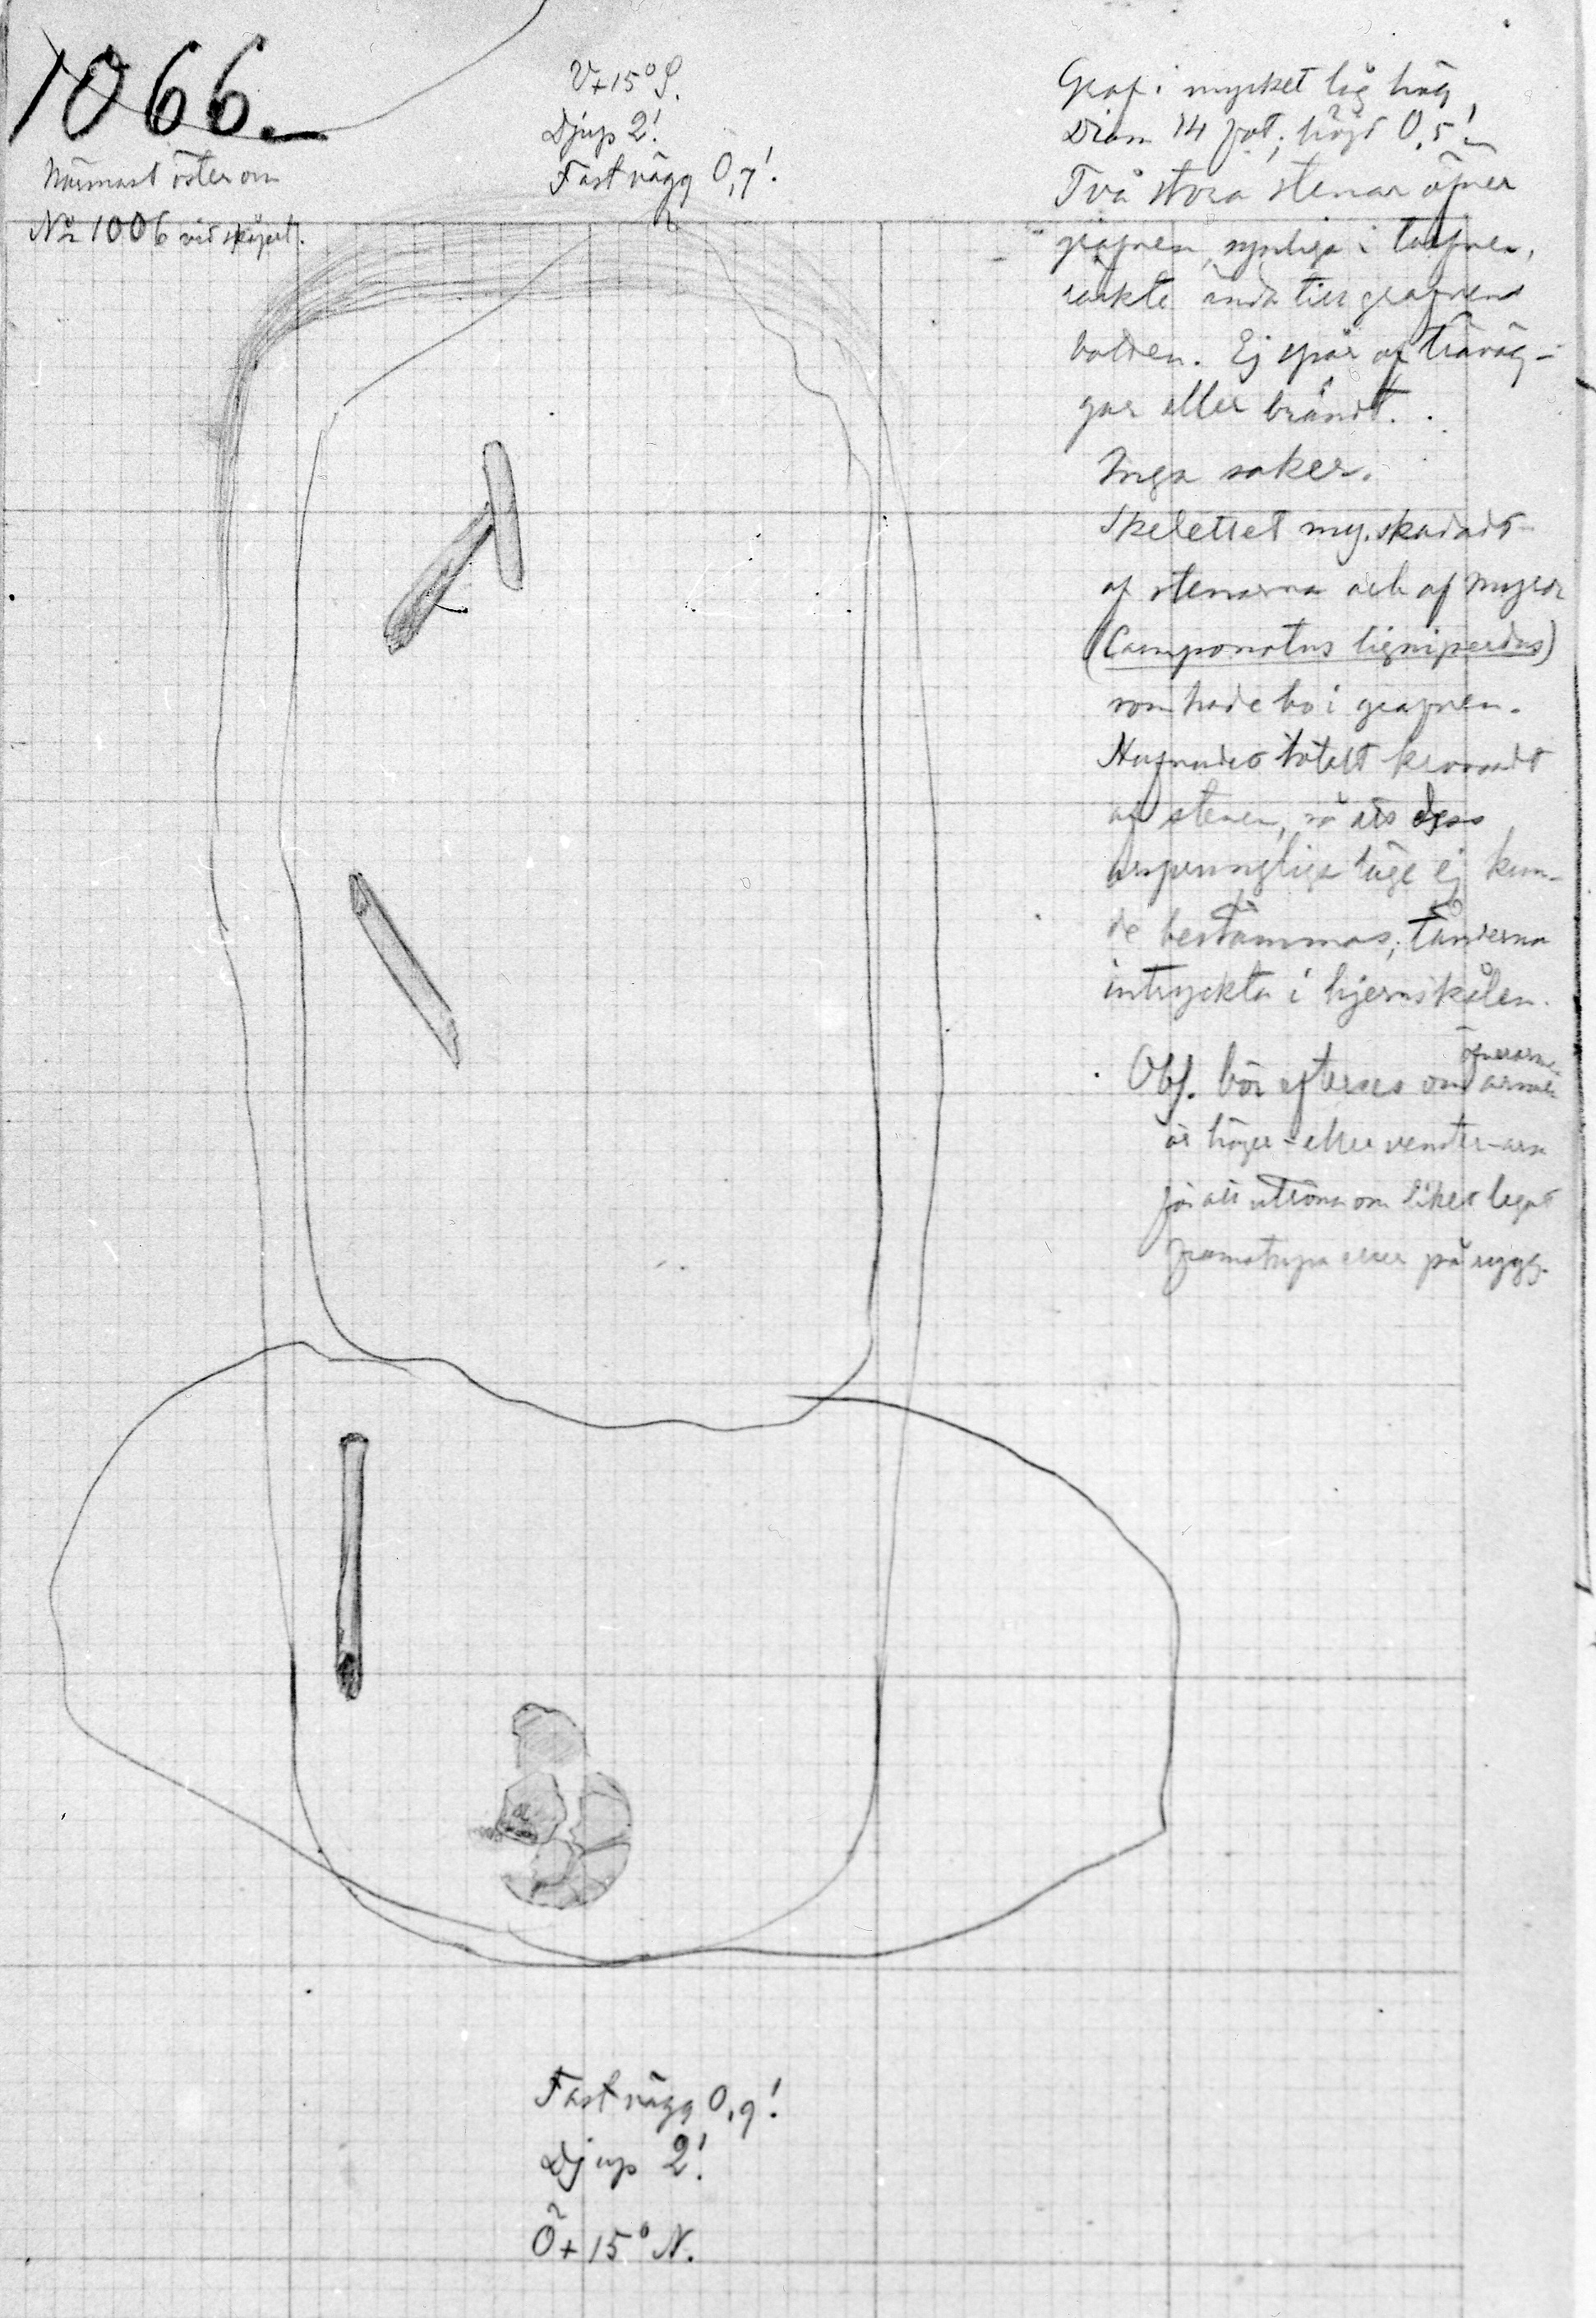 1066.
Närmast öster om
No 1006 vid skåpet.
V+15° S.
Djup 2'.
Fast vägg 0,7'.
Graf i mycket låg hög
Diam 14 fot; höjd 0,5'.
Två stora stenar öfver
grafven, synliga i torfven,
räckte ända till grafvens
botten. Ej spår af träväg-
gar eller brändt.
Inga saker.
Skelettet my. skadadt
af stenarna och af myror
(Camponotus ligniperdus)
som hade bo i grafven.
Hufvudet totalt krossadt
af stenen, så att dess
ursprungliga läge ej kun-
de bestämmas; tänderna
intryckta i hjernskålen.
Obs. bör efterses om öfverarmen
är höger- eller venster-arm
för att utröna om liket legat
framstupa eller på rygg.
Fast vägg 0,9'.
Djup 2'.
Ö+15° N.